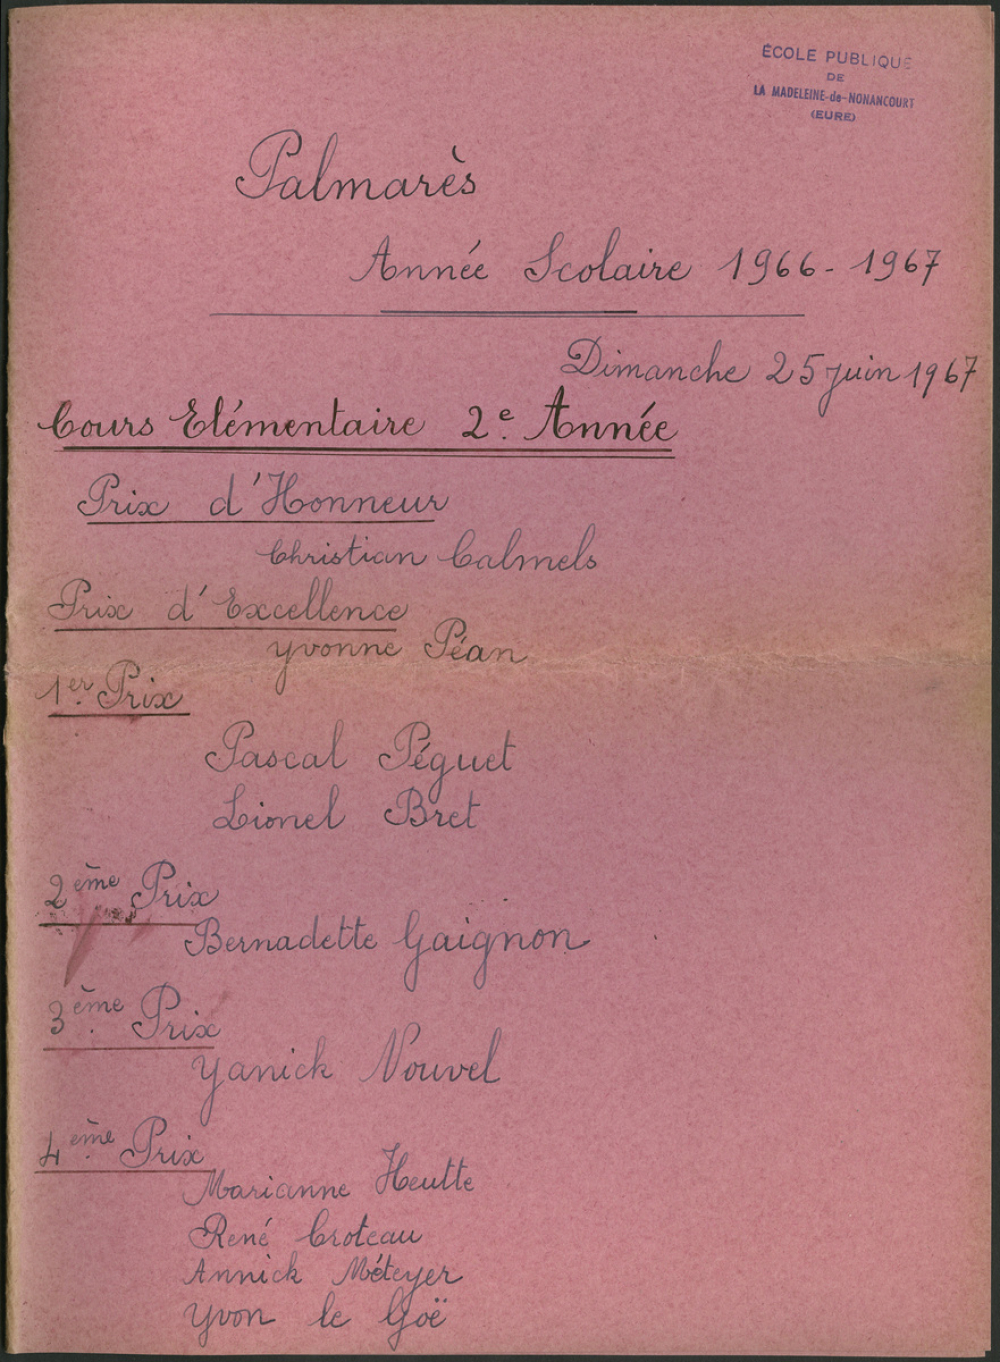 ÉCOLE PUBLIQUE
DE
LA MADELEINE-de-NONANCOURT
(EURE)
Palmarès
Année Scolaire 1966-1967
Dimanche 25 juin 1967
Cours Elémentaire 2e. Année
Prix d'Honneur
Christian Calmels
Prix d'Excellence
Yvonne Péan
1er. Prix
Pascal Péguet
Lionel Bret
2ème Prix
Bernadette Gaignon
3ème. Prix
Yanick Nouvel
4ème. Prix
Marianne Heutte
René Croteau
Annick Méteyer
Yvon le Goë